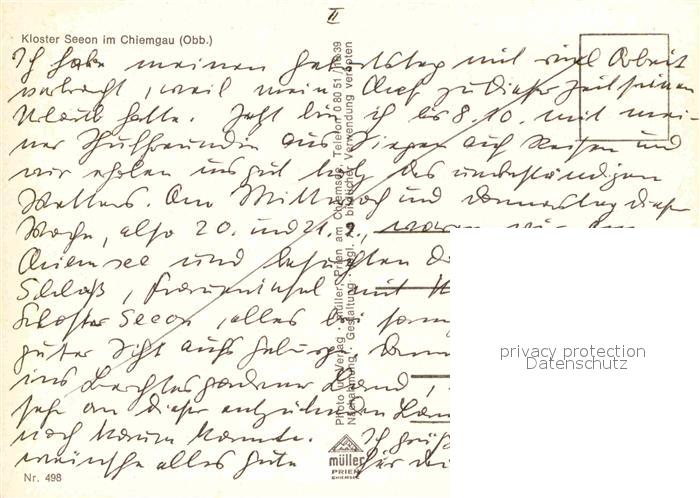 II
Kloster Seeon im Chiemgau (Obb.)
Ich habe meinen Geburtstag mit viel Arbeit
verbracht, weil mein Chef zu dieser Zeit seinen
Urlaub hatte. Jetzt bin ich bis 8.10. mit mei-
ner Schulfreundin aus Siegen auf Reisen und
wir erholen uns gut trotz des unbeständigen
Wetters. Am Mittwoch und Donnerstag dieser
Woche, also 20. und 21. 9., waren wir am
Chiemsee und besichten
Schloß, Fraueninsel mit
Kloster Seeon, alles bei
guter Sicht aufs Gebirge. Dann
ins Berchtesgadener Land,
sehr an dieser entzückenden
noch kaum kannte. Ich grüße
wünsche alles Gute für
Photo u. Verlag · müller, Prien am Chiemsee, Telefon 0 80 51 / 16 39
Nachahmung, Gestaltung, zgl. bildlicher Verwendung verboten
müller
PRIEN
CHIEMSEE
Nr. 498
privacy protection
Datenschutz